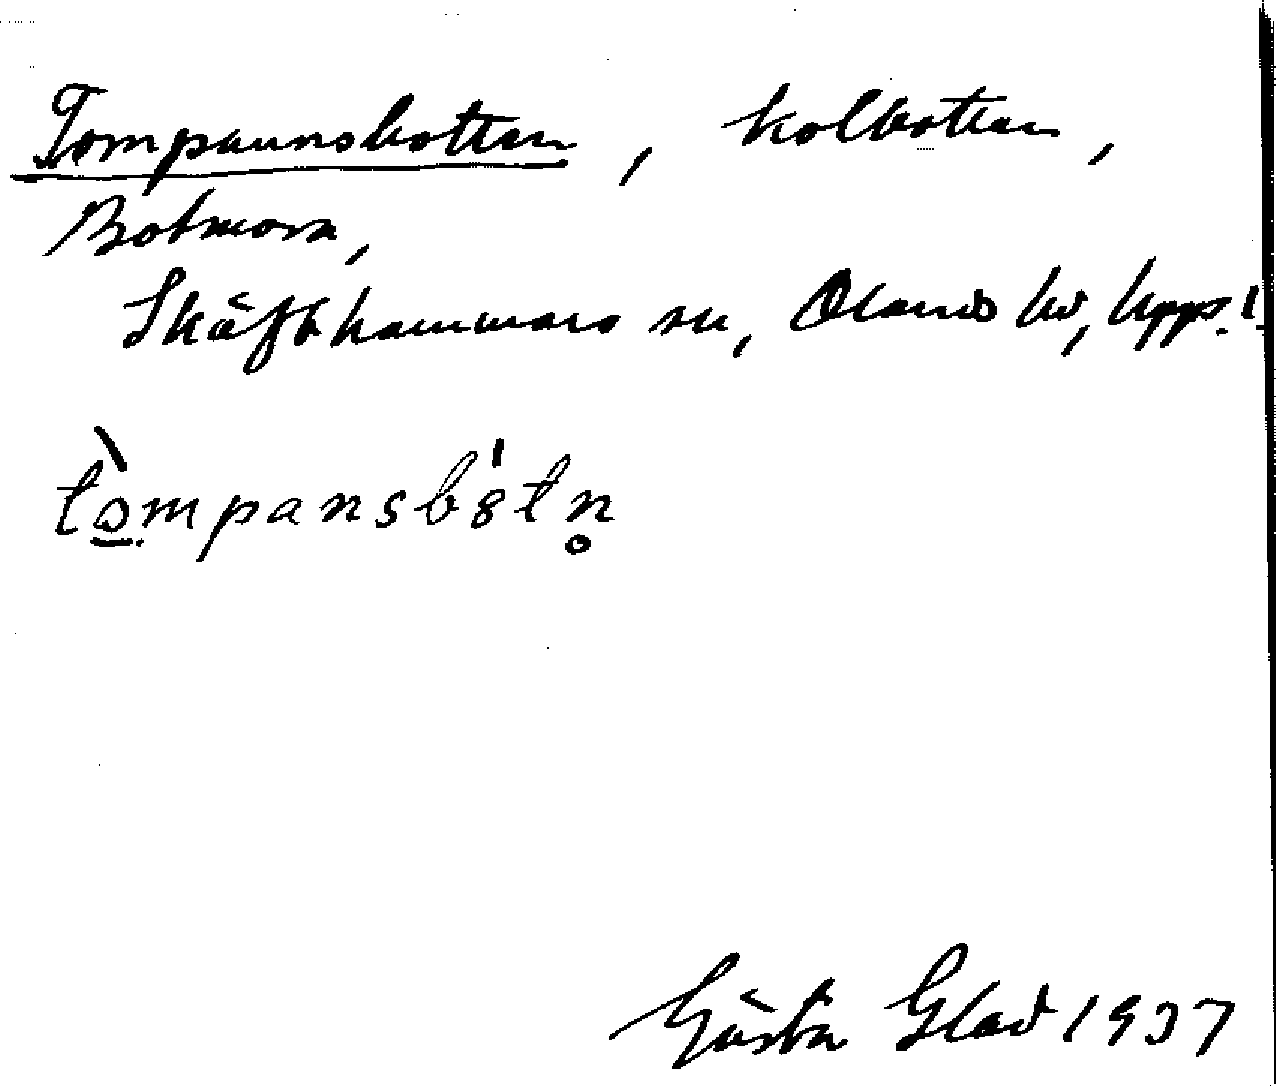 Tompaunsbotten, kolbotten,
Botmora,
Skäfthammars sn, Olands hd, Upps. l.
tòmpansbòtn̥
Gösta Glad 1937